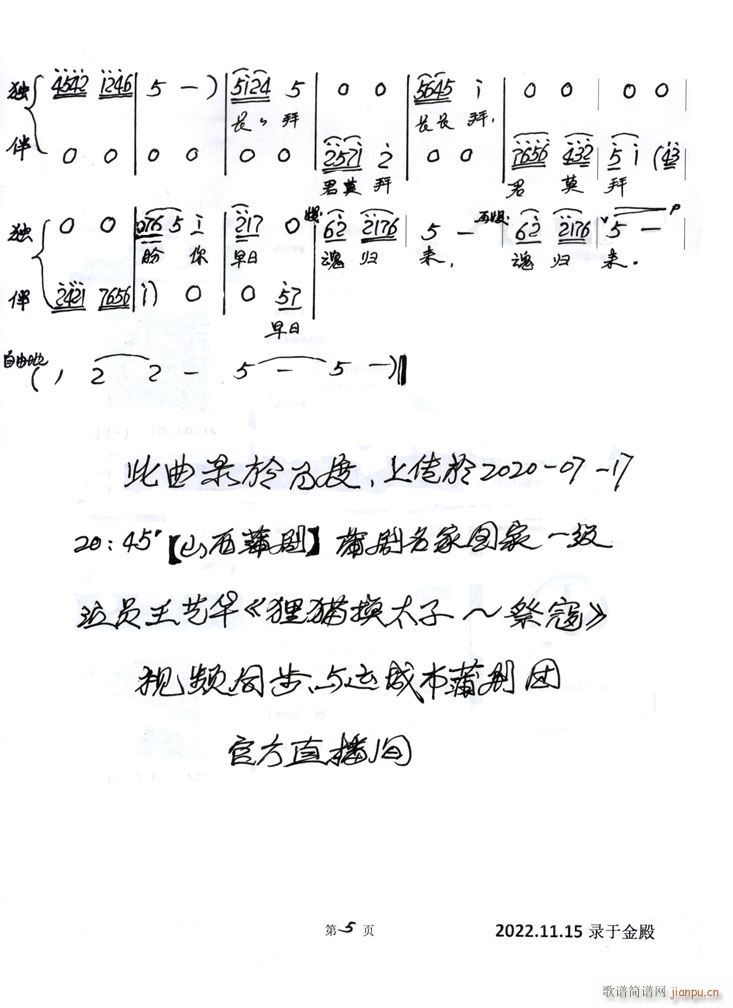 独 4542 1246 | 5 - ) | 5124 5 | 0 0 | 5645 i | 0 0 | 0 0
长〃 拜 长长 拜，
伴 0 0 | 0 0 | 0 0 | 2571 2 | 0 0 | 7656 432 | 5 i (43
君莫 拜 君 莫 拜
独 0 0 | 076 5 i | 217 0 | 62 2176 | 5 - | 62 2176 | 5 -
盼 你 早日 魂 归 来， 魂 归 来。
伴 2421 7656 | i) 0 | 0 57
早日
自由地
( , 2 2 - 5 - 5 - )
此曲录於百度，上传於2020-07-17
20:45'【山西蒲剧】蒲剧名家国家一级
演员王艺华《狸猫换太子～祭寇》
视频同步与运城市蒲剧团
官方直播间
第 5 页 2022.11.15 录于金殿
歌谱简谱网
jianpu.cn